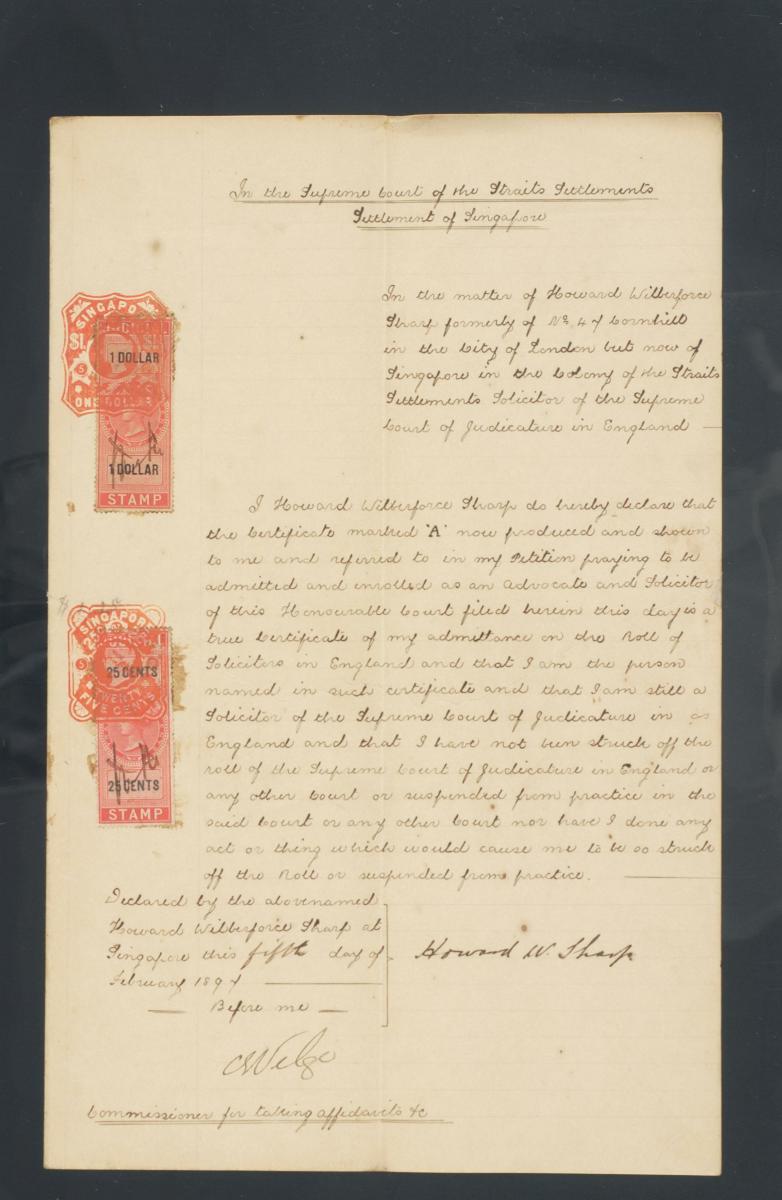 In the Supreme Court of the Straits Settlements
Settlement of Singapore
In the matter of Howard Wilberforce
Sharp formerly of No 47 Cornhill
in the City of London but now of
Singapore in the Colony of the Straits
Settlements Solicitor of the Supreme
Court of Judicature in England
SINGAPORE
$1.
1 DOLLAR
ONE DOLLAR
1 DOLLAR
STAMP
I Howard Wilberforce Sharp do hereby declare that
the Certificate marked "A" now produced and shown
to me and referred to in my Petition praying to be
admitted and enrolled as an Advocate and Solicitor
of this Honourable Court filed herein this day is a
true Certificate of my admittance on the Roll of
Soliciters in England and that I am the person
named in such certificate and that I am still a
Solicitor of the Supreme Court of Judicature in as
England and that I have not been struck off the
roll of the Supreme Court of Judicature in England or
any other Court or suspended from practice in the
said Court or any other Court nor have I done any
act or thing which would cause me to be so struck
off the Roll or suspended from practice.
SINGAPORE
25 CENTS
TWENTY
FIVE CENTS
25 CENTS
STAMP
Declared by the abovenamed
Howard Wilberforce Sharp at
Singapore this fifth day of
February 1897
Before me
Howard W. Sharp
Commissioner for taking affidavits &c